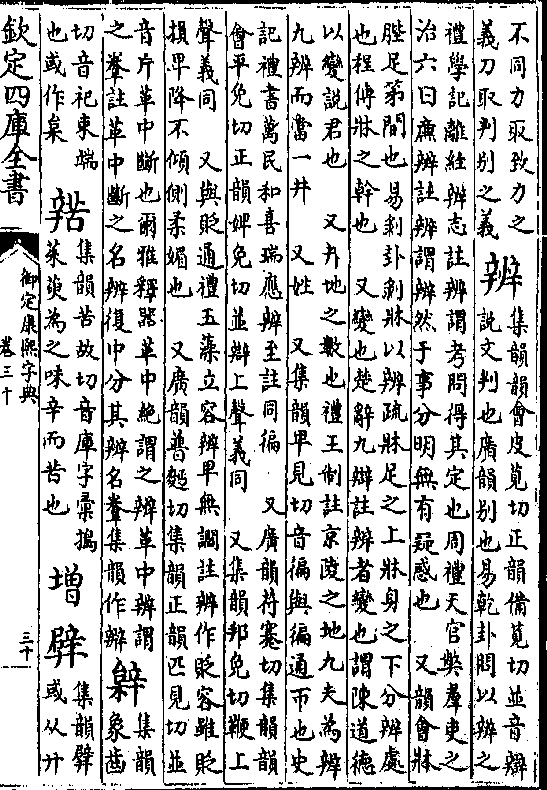 不同力取致力之
義刀取判別之義
辨
集韻韻會皮莧切正韻備莧切並音辧
說文判也廣韻別也易乾卦問以辨之
禮學記離經辨志註辨謂考問得其定也周禮天官獘羣吏之
治六曰廉辨註辨謂辨然于事分明無有疑惑也　又韻會牀
䏶足第間也易剝卦剝牀以辨疏牀足之上牀身之下分辨處
也程傳牀之幹也　又變也楚辭九辯註辨者變也謂陳道德
以變說君也　又井地之數也禮王制註京陵之地九夫為辨
九辨而當一井　又姓　又集韻卑見切音徧與徧通帀也史
記禮書萬民和喜瑞應辨至註同徧　又廣韻符蹇切集韻韻
會平免切正韻婢免切並辯上聲義同　又集韻邦免切鞭上
聲義同　又與貶通禮玉藻立容辨卑無讇註辨作貶容雖貶
損卑降不傾側柔媚也　又廣韻普麵切集韻正韻匹見切並
音片革中斷也爾雅釋器革中絶謂之辨革中辨謂
之韏註革中斷之名辨復中分其辨名韏集韻作辧
集韻
象齒
切音祀東端
也或作枲
集韻苦故切音庫字彙搗
茱萸為之味辛而苦也
增
集韻
或从廾
欽定四庫全書
御定康熙字典
卷三十
三十